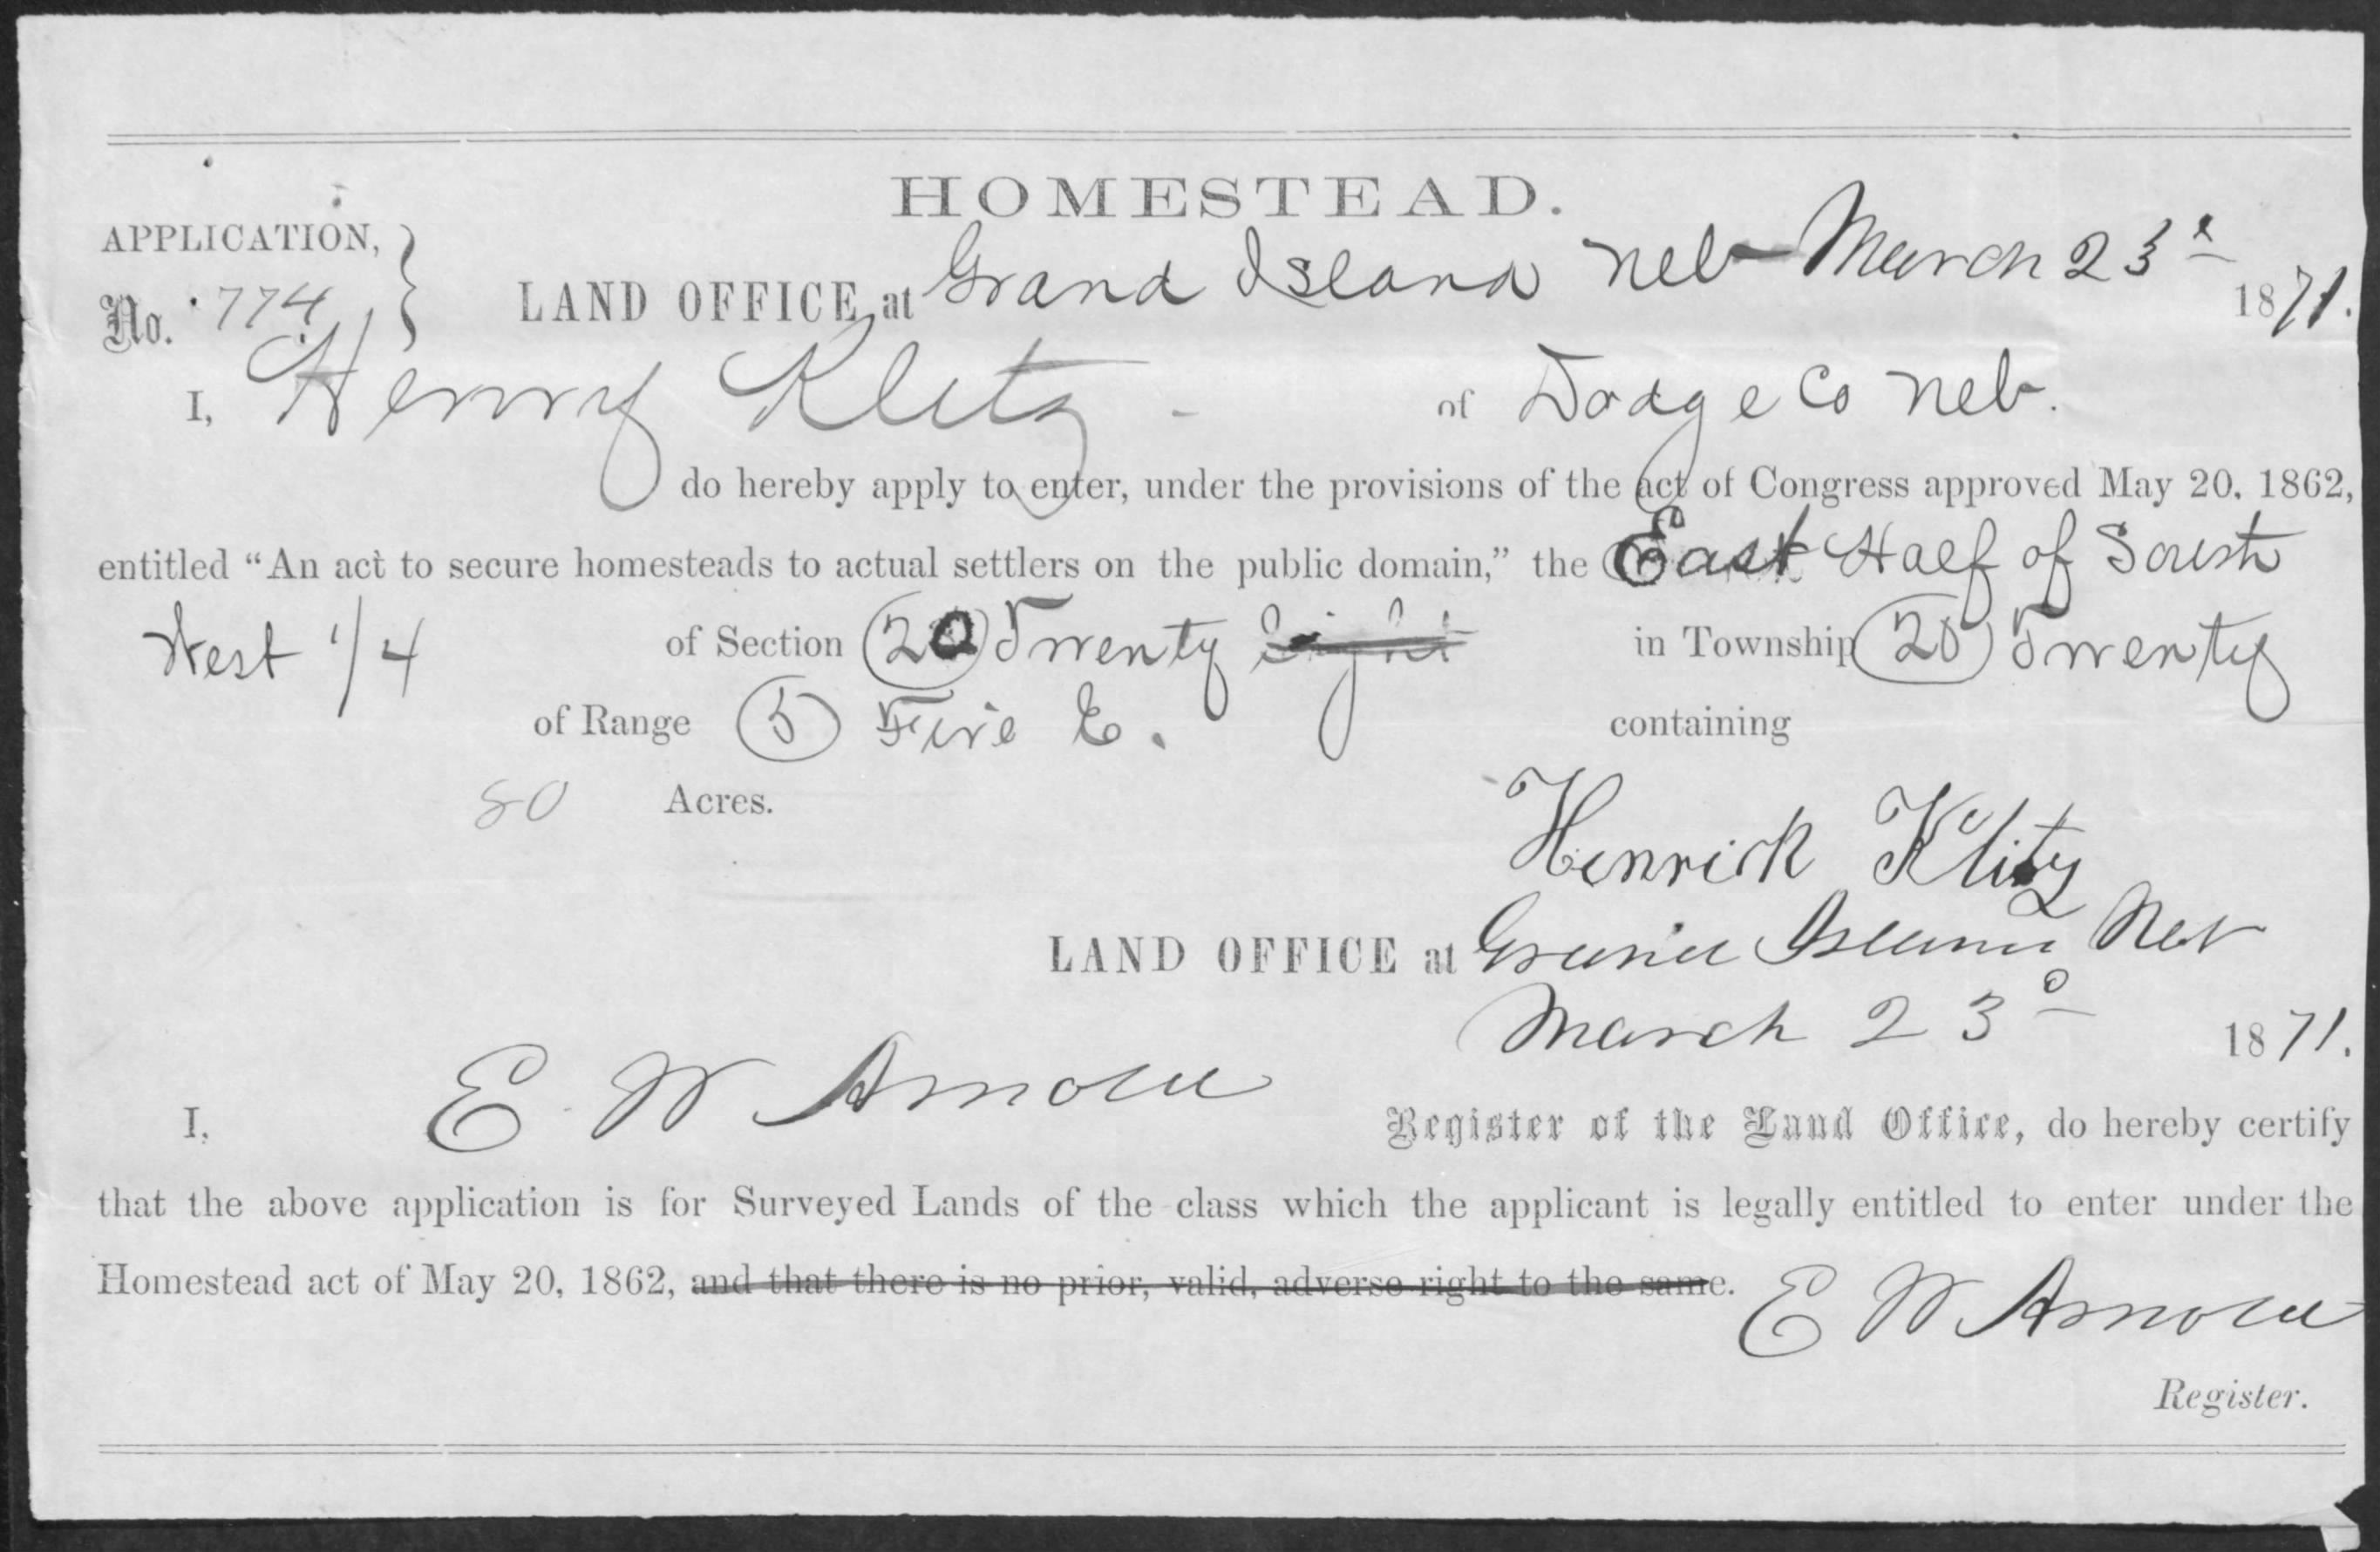 HOMESTEAD.
APPLICATION,
No. 774 LAND OFFICE at Grand Island Neb March 23d 1871.
I, Henry Klitz of Dodge Co Neb.
do hereby apply to enter, under the provisions of the act of Congress approved May 20, 1862,
entitled “An act to secure homesteads to actual settlers on the public domain,” the East Half of South
West 1/4 of Section (20) Twenty eight in Township (20) Twenty
of Range (5) Five E. containing
80 Acres.
Henrick Klitz
LAND OFFICE at Grand Island Neb
March 23d 1871.
I, E W Arnold Register of the Land Office, do hereby certify
that the above application is for Surveyed Lands of the class which the applicant is legally entitled to enter under the
Homestead act of May 20, 1862, and that there is no prior, valid, adverse right to the same.
E W Arnold
Register.